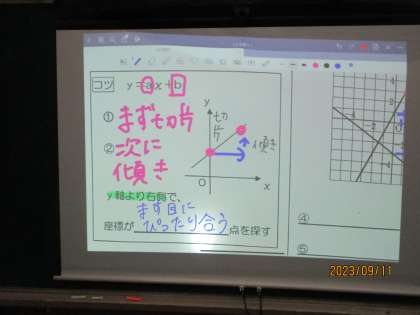 コツ y=ax+b
① まず切片
② 次に
傾き
y
切片
傾き
O
x
y軸より右側で、
ます目に
座標が ぴったり合う 点を探す
④
⑤
2023/09/11